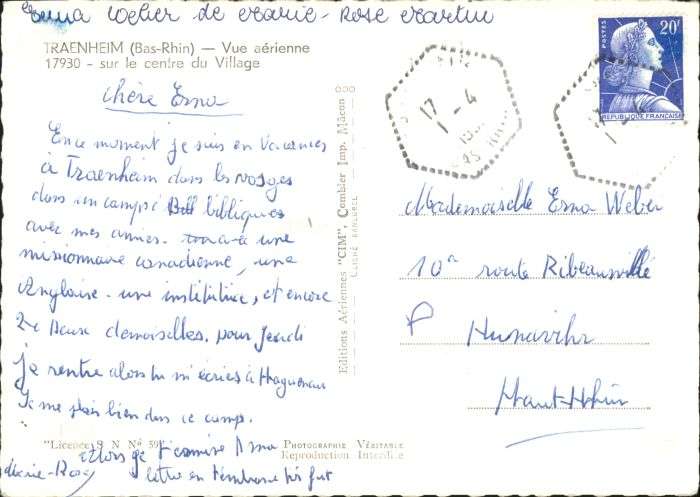 Erna Weber de Marie-Rose Martin
TRAENHEIM (Bas-Rhin) — Vue aérienne
17930 - sur le centre du Village
chère Erna
En ce moment je suis en vacances
à Traenheim dans les vosges
dans un camps bibliques
avec mes amies. une
missionnaire canadienne, une
Anglaise. une institutrice, et encore
deux demoiselles. pour Jeudi
je rentre alors tu m'écries à Haguenau
Je me plais bien dans ce camp.
"Licence S N N° 59"
et lors je t'
lettre en t'embrasse très fort
Marie-Rose
Editions Aériennes "CIM", Combier Imp. Mâcon
PHOTOGRAPHIE VÉRITABLE
Reproduction Interdite
POSTES
20F
REPUBLIQUE FRANÇAISE
17
1-4
BAS-RHIN
Mademoiselle Erna Weber
10 route Ribeauvillé
Hunawihr
Haut-Rhin